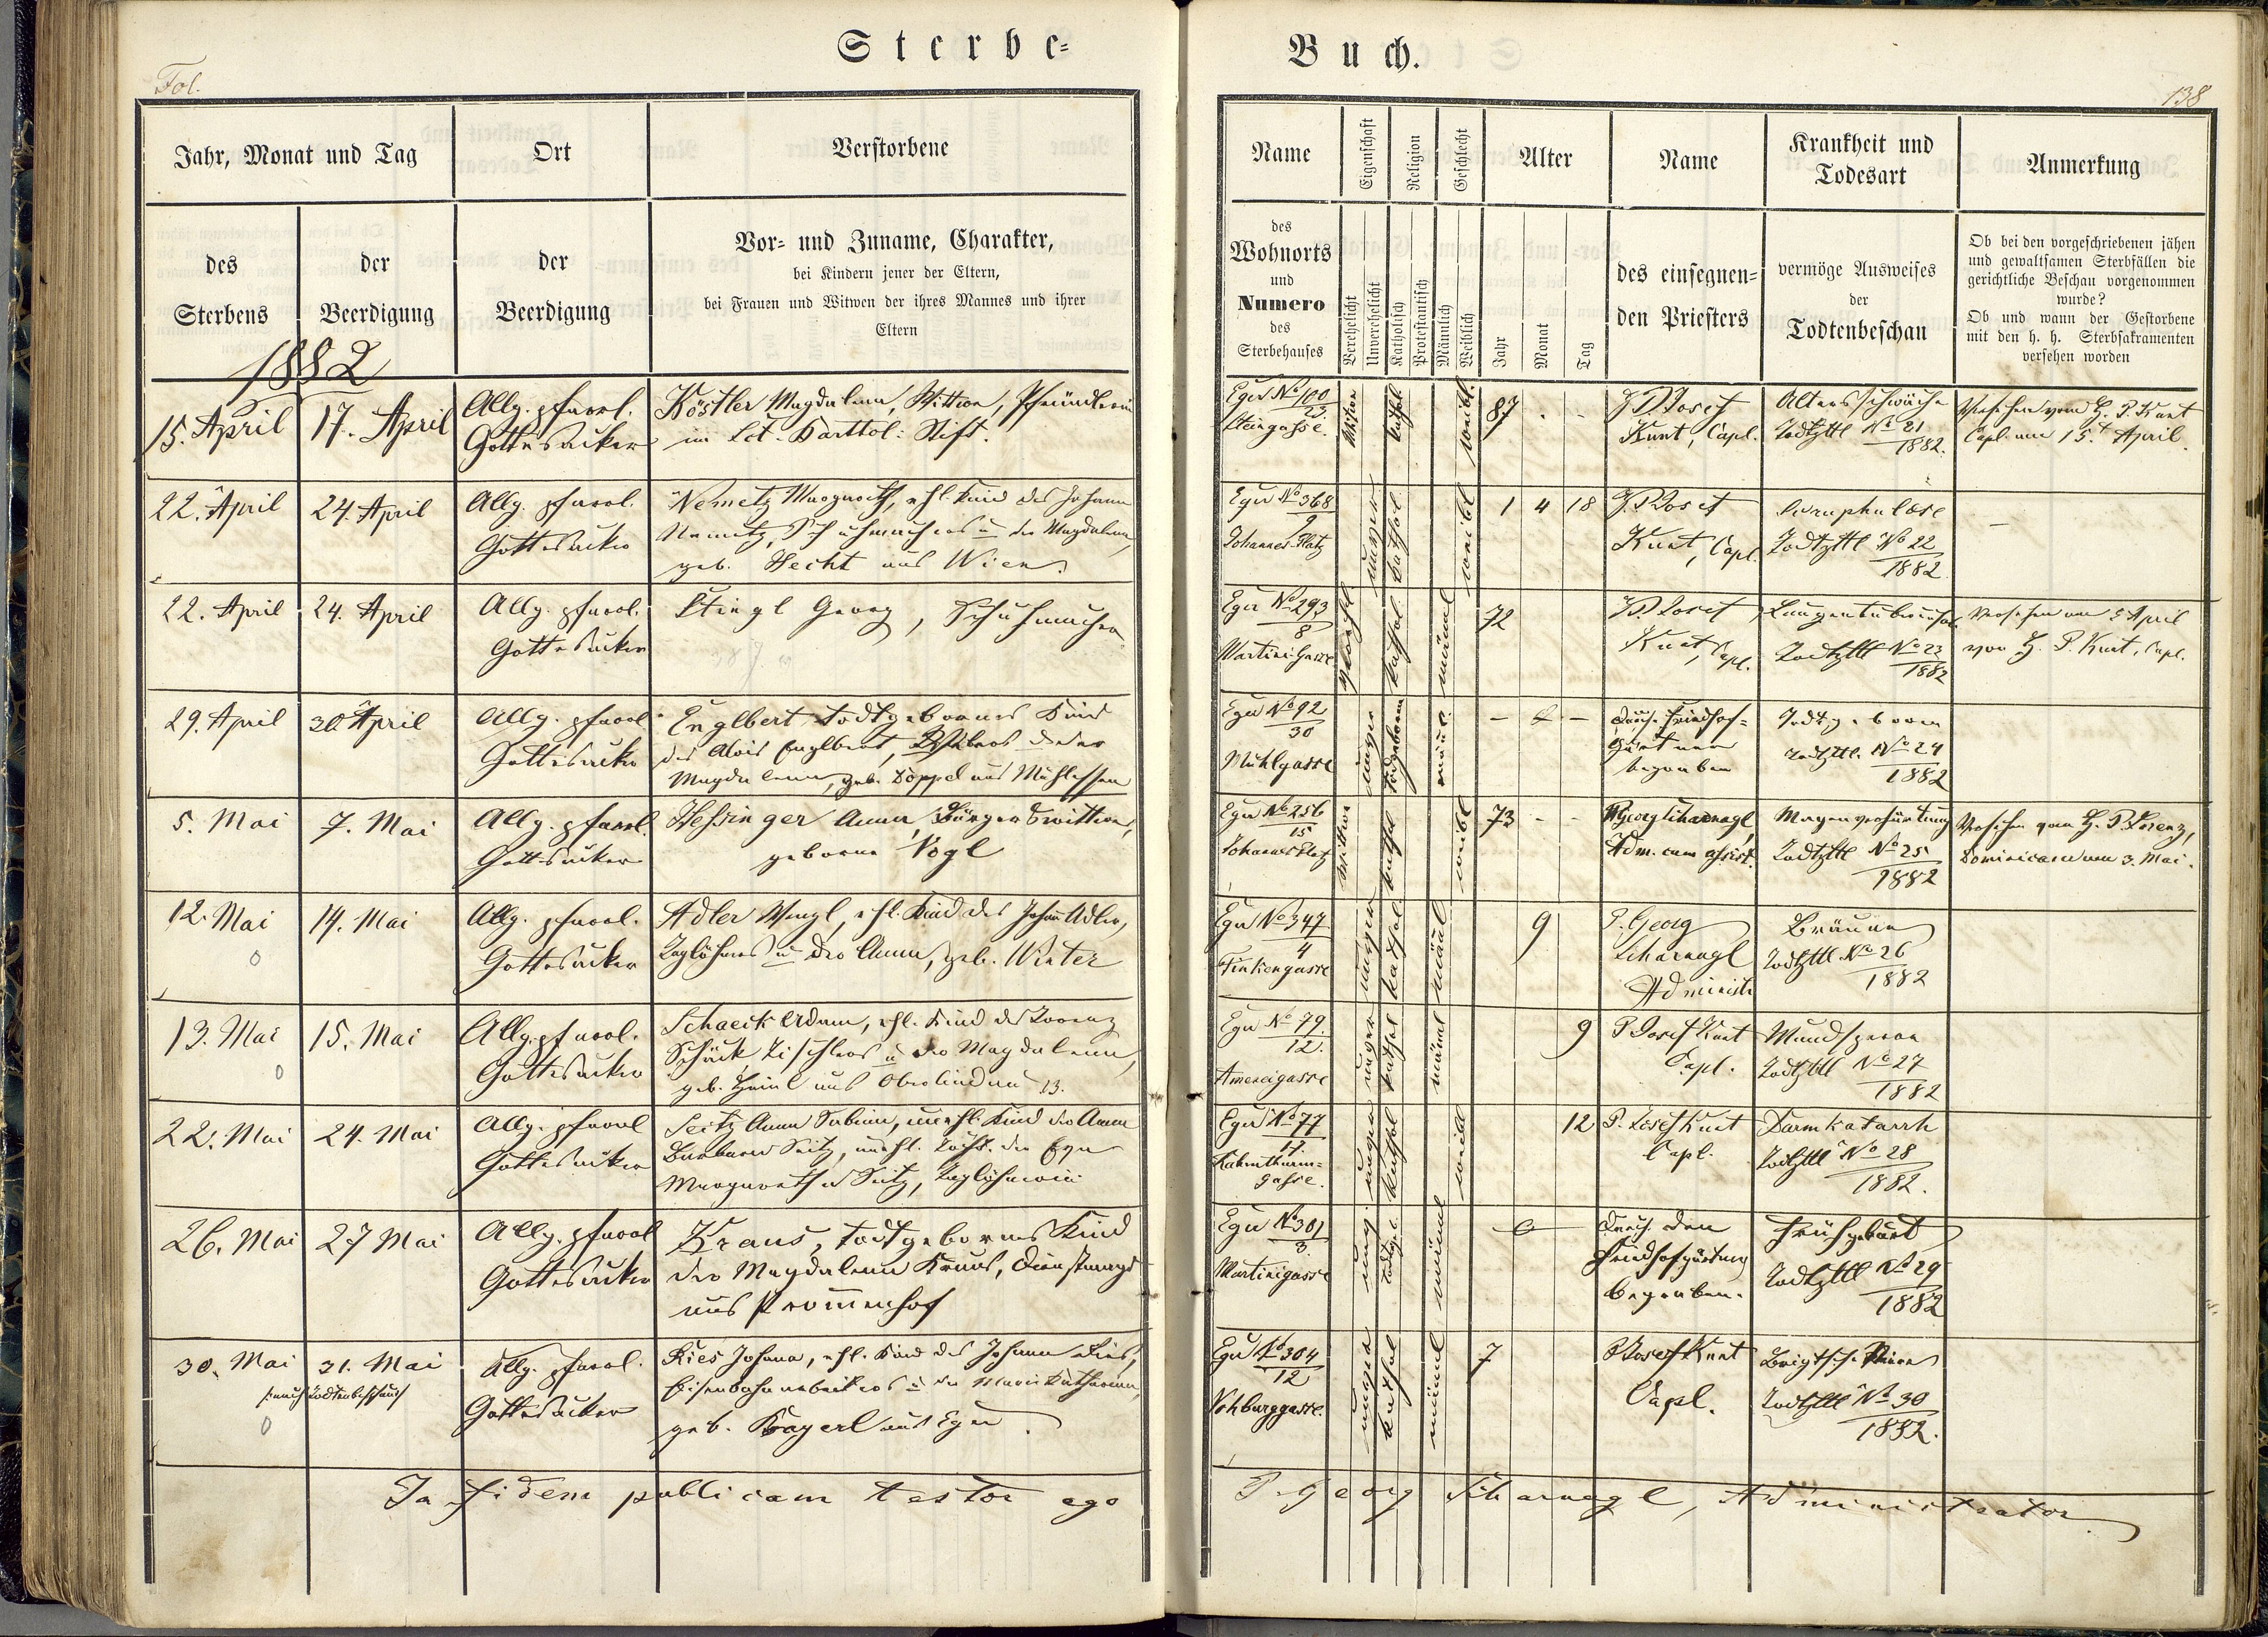 Sterbe=
Buch.
Fol.
138
Jahr, Monat und Tag
Ort
Verstorbene
des
Sterbens
der
Beerdigung
der
Beerdigung
Vor= und Zuname, Charakter,
bei Kindern jener der Eltern,
bei Frauen und Witwen der ihres Mannes und ihrer
Eltern
Name
Eigenschaft
Religion
Geschlecht
Alter
Name
Krankheit und
Todesart
Anmerkung
des
Wohnorts
und
Numero
des
Sterbehauses
Verehelicht
Unverehelicht
Katholisch
Protestantisch
Männlich
Weiblich
Jahr
Monat
Tag
des einsegnen=
den Priesters
vermöge Ausweises
der
Todtenbeschau
Ob bei den vorgeschriebenen jähen
und gewaltsamen Sterbfällen die
gerichtliche Beschau vorgenommen
wurde?
Ob und wann der Gestorbene
mit den h. h. Sterbsakramenten
versehen worden
1882
15. April
17. April
Allg. pfarrl.
Gottesacker
Köstler Magdalena, Wittwe, Pfründlerin
im Sct. Barthol: Stift.
Eger No 100
Steingasse.
Wittwe
kathol
weibl.
87
P. Josef
Kunt, Capl.
Altersschwäche
Todtzttl No 21
1882.
Versehen vom H. P. Kunt
Capl. am 15. April
22. April
24. April
Allg. pfarrl.
Gottesacker
Nemetz Margareth, ehl. Kind des Johann
Nemetz, Schuhmachers u der Magdalena,
geb. Hecht aus Wien
Eger No 368
9
Johannes-Platz
kathol.
weibl
1 4 18
P. Josef
Kunt, Capl.
Scrophulose
Todtzttl No 22
1882.
22. April
24. April
Allg. pfarrl.
Gottesacker
Stingl Georg, Schuhmacher
Eger No 293
8
Martini-Gasse
kathol
männl
72
P. Josef
Kunt, Capl.
Lungentuberculose
Todtzttl No 23
1882
Versehen am 5 April
von H. P. Kunt, Capl.
29. April
30 April
Allg. pfarrl.
Gottesacker
Englbert todtgebornes Kind
des Alois Englbert, Webers u der
Magdalena, geb. Döppel aus Mühlessen
Eger No 92
30
Mühlgasse
todtgeboren
männl.
Durch Friedhof=
gärtner
begraben
Todtgeboren
Todtzttl. No 24
1882
5. Mai
7. Mai
Allg. pfarrl.
Gottesacker
Hessinger Anna, Bürgerswittwe,
geborne Vogl
Eger No 256
15
Johannes Platz
Wittwe
kathol
weibl
73
P. Georg Scharnagl,
Adm. cum assist.
Magenverhärtung
Todtzttl No 25
1882
Versehen vom H. P. Lorenz,
Dominicaner am 3. Mai.
12. Mai
14. Mai
Allg. pfarrl.
Gottesacker
Adler Wenzl, ehl. Kind des Johann Adler,
Taglöhners u der Anna, geb. Winter
Eger No 347
4
Finkengasse
kathol
männl
9
P. Georg
Scharnagl
Administr
Bräune
Todtzttl. No 26
1882
13. Mai
15. Mai
Allg. pfarrl.
Gottesacker
Schaeck Adam, ehl. Kind des Lorenz
Schäck Tischlers u der Magdalena,
geb. Heinl aus Oberlindau 13.
Eger No 79.
12.
Amereigasse
kathol
männl
9
P. Josef Kunt
Capl.
Mundsperre
Todtzttl No 27
1882
22. Mai
24. Mai
Allg. pfarrl
Gottesacker
Seitz Anna Sabina, unehl. Kind der Anna
Barbara Seitz, unehl. Tocht. der Eger
Margaretha Seitz, Taglöhnerin
Eger No 77
17.
Kahnthurm=
gasse.
kathol
weibl
12
P. Josef Kunt
Capl.
Darmkatarrh
Todtzttl No 28
1882.
26. Mai
27 Mai
Allg. pfarrl
Gottesacker
Kraus, todtgebornes Kind
der Magdalena Kraus, Dienstmagd
aus Promenhof
Eger No 301
3
Martinigasse
todtgeb.
männl
Durch den
Friedhofgärtner
begraben.
Frühgeburt
Todtzttl No 29
1882
30. Mai
31. Mai
Allg. pfarrl.
Gottesacker
Ries Johann, ehl. Kind des Johann Ries,
Eisenbahnarbeiters u der Maria Katharina,
geb. Bayerl aus Eger.
Eger No 304
12
Vohburggasse.
kathol
männl
7
P. Josef Kunt
Capl.
Todtzttl No 30
1882.
In fidem publicam testor ego
P. Georg Scharnagl, Administrator.